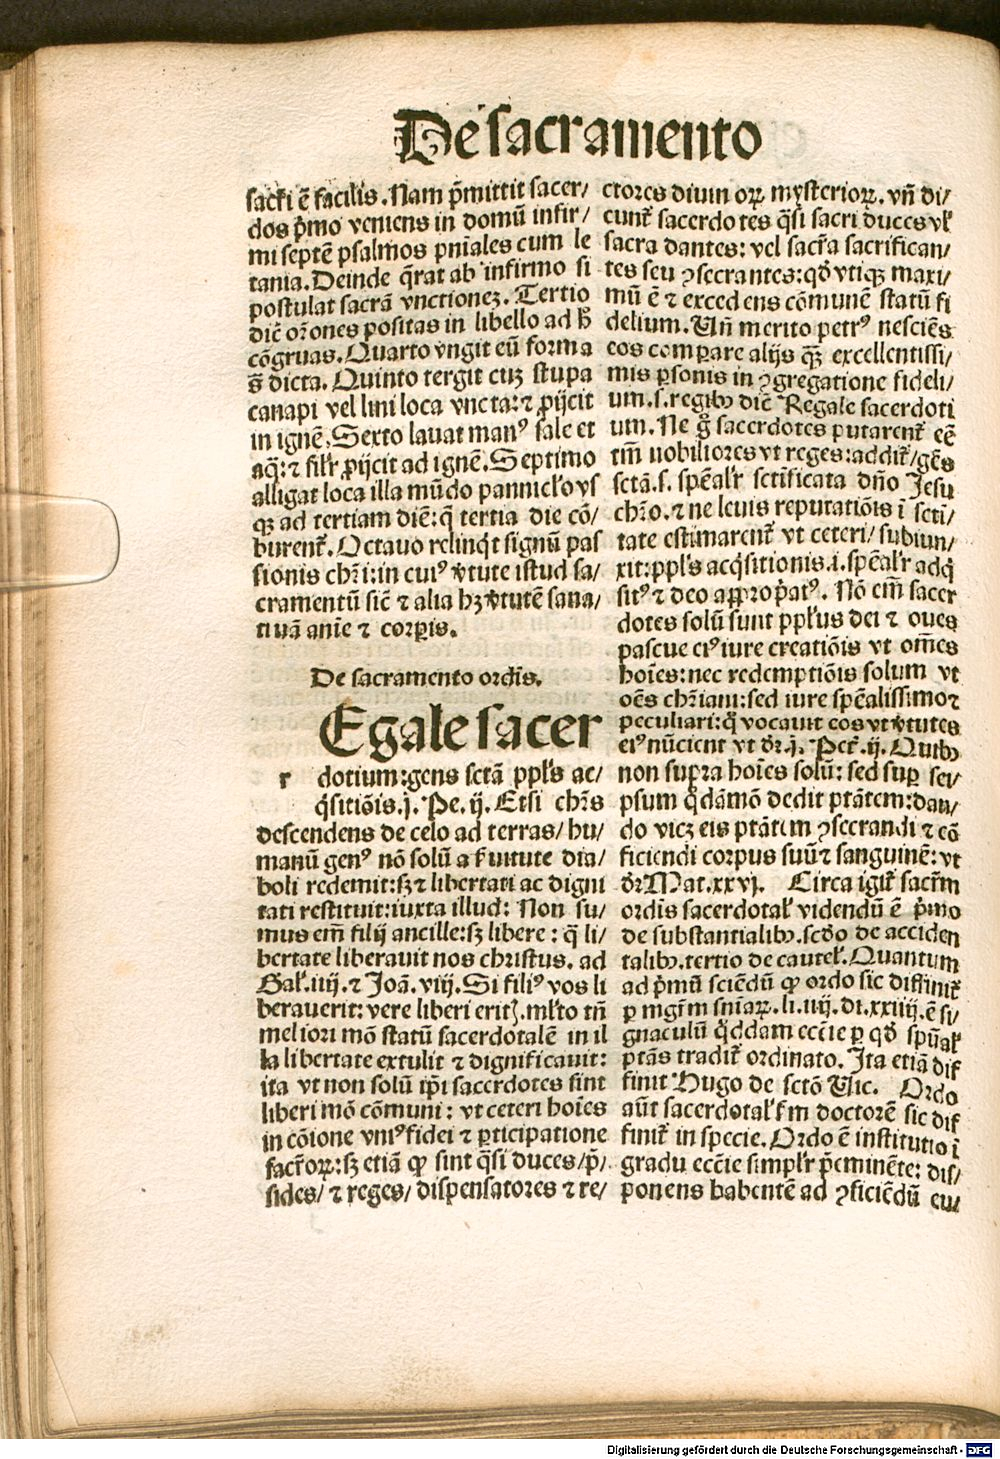 De sacramento
sacr̄i ē facilis. Nam p̄mittit sacer/
dos p̄mo veniens in domū infir/
mi septē psalmos pn̄iales cum le
tania. Deinde q̄rat ab infirmo si
postulat sacrā vnctionez. Tertio
dic̄ or̄ones positas in libello ad h̄
cōgruas. Quarto vngit eū forma
s̄ dicta. Quinto tergit cuʒ stupa
canapi vel lini loca vncta: ⁊ ꝓijcit
in ignē, Sexto lauat manꝰ sale et
aq̄: ⁊ sil'r ꝓijcit ad ignē. Septimo
alligat loca illa mūdo pannicl'o vs
qʒ ad tertiam diē: q̄ tertia die cō/
burent̄. Octauo relinq̄t signū pas
sionis chr̄i: in cuiꝰ v̄tute istud sa/
cramentū sic̄ ⁊ alia hʒ v̄tutē sana/
tiuā anīe ⁊ corꝑis.
De sacramento ordīs.
Egale sacer
r dotium: gens sctā ppl's ac/
q̄sitiōis. j. Pe. ij. Etsi chr̄s
descendens de celo ad terras/ hu/
manū genꝰ nō solū a ẜuitute dia/
boli redemit: sʒ ⁊ libertati ac digni
tati restituit: iuxta illud: Non su/
mus em̄ filij ancille: sʒ libere: q̄ li/
bertate liberauit nos christus. ad
Gal'. iiij. ⁊ Joā. viij. Si filiꝰ vos li
berauerit: vere liberi eritꝭ. ml'to tn̄
meliori mō statū sacerdotalē in il
la libertate extulit ⁊ dignificauit:
ita vt non solū ip̄i sacerdotes sint
liberi mō cōmuni: vt ceteri hoīes
in cōione vniꝰ fidei ⁊ ꝑticipatione
sacr̄oꝝ: sʒ etiā ꝙ sint q̄si duces/ p̄/
sides/ ⁊ reges/ dispensatores ⁊ re/
ctores diuinoꝝ mysterioꝝ. vn̄ di/
cunt̄ sacerdotes q̄si sacri duces vl'
sacra dantes: vel sacr̄a sacrifican/
tes seu ꝯsecrantes: qd̄ vtiqʒ maxi/
mū ē ⁊ excedens cōmunē statū fi
delium. Vn̄ merito petrꝰ nesciēs
eos comparare alijs qʒ̄ excellentissi/
mis ꝑsonis in ꝯgregatione fideli/
um. s. regibꝰ dic̄ Regale sacerdoti
um. Ne g̊ sacerdotes putarent̄ eē
tm̄ nobiliores vt reges: addit̄/ gēs
sctā. s. spēal'r sctīficata dn̄o Jesu
chr̄o. ⁊ ne leuis reputatiōis ī scti/
tate estimarent̄ vt ceteri/ subiun/
xit: ppl's acq̄sitionis. i. spēal'r adq̄
sitꝰ ⁊ deo appropatꝰ. Nō em̄ sacer
dotes solū sunt ppl'us dei ⁊ oues
pascue eiꝰ iure creatiōis vt om̄es
hoīes: nec redemptiōis solum vt
oēs chr̄iani: sed iure spēalissimo ⁊
peculiari: q̄ vocauit eos vt v̄tutes
eiꝰ nūcient vt dr̄. j. Pet̄. ij. Quibꝰ
non supra hoīes solū: sed suꝑ sei/
psum q̄dāmō dedit ptātem: dan/
do vicʒ eis ptātem ꝯsecrandi ⁊ cō
ficiendi corpus suū ⁊ sanguinē: vt
dr̄ Mat. xxvj. Circa igit̄ sacr̄m
ordīs sacerdotal' videndū ē p̄mo
de substantialibꝰ. scd̄o de acciden
talibꝰ. tertio de cautel'. Quantum
ad p̄mū sciēdū ꝙ ordo sic diffinit̄
ꝑ mgr̄m sn̄iaꝝ. li. iiij. di. xxiiij. ē si/
gnaculū q̄ddam ecc̄ie ꝑ qd̄ spūal'
ptās tradit̄ ordinato. Ita etiā dif
finit Hugo de sctō Vic. Ordo
aūt sacerdotal' ẜm doctorē sic dif
finit̄ in specie. Ordo ē institutio ī
gradu ecc̄ie simpl'r p̄eminēte: dis/
ponens habentē ad ꝯficiēdū eu/
Digitalisierung gefördert durch die Deutsche Forschungsgemeinschaft - DFG